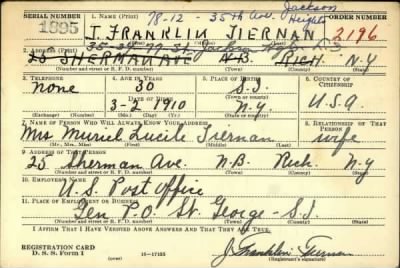 SERIAL NUMBER 1. NAME (Print) 78-12 - 35th Ave. Jackson Heights ORDER NUMBER
1895 J. FRANKLIN TIERNAN 2196
2. ADDRESS (Print) 35-
25 SHERMAN AVE N.B. RICH. N.Y
(Number and street or R. F. D. number) (Town) (County) (State)
3. TELEPHONE 4. AGE IN YEARS 5. PLACE OF BIRTH 6. COUNTRY OF CITIZENSHIP
none 30 S.I.
DATE OF BIRTH
3-2 1910 N.Y. U.S.A
(Exchange) (Number) (Mo.) (Day) (Yr.) (State or country)
7. NAME OF PERSON WHO WILL ALWAYS KNOW YOUR ADDRESS 8. RELATIONSHIP OF THAT PERSON
Mrs Muriel Lucile Tiernan wife
(Mr., Mrs., Miss) (First) (Middle) (Last)
9. ADDRESS OF THAT PERSON
25 Sherman Ave. N.B. Rich. N.Y
(Number and street or R. F. D. number) (Town) (County) (State)
10. EMPLOYER'S NAME
U.S. Post Office
11. PLACE OF EMPLOYMENT OR BUSINESS
Gen P.O. St. George - S.I.
(Number and street or R. F. D. number) (Town) (County) (State)
I AFFIRM THAT I HAVE VERIFIED ABOVE ANSWERS AND THAT THEY ARE TRUE.
REGISTRATION CARD
D. S. S. Form 1 16-17105 J. Franklin Tiernan
(Registrant's signature)